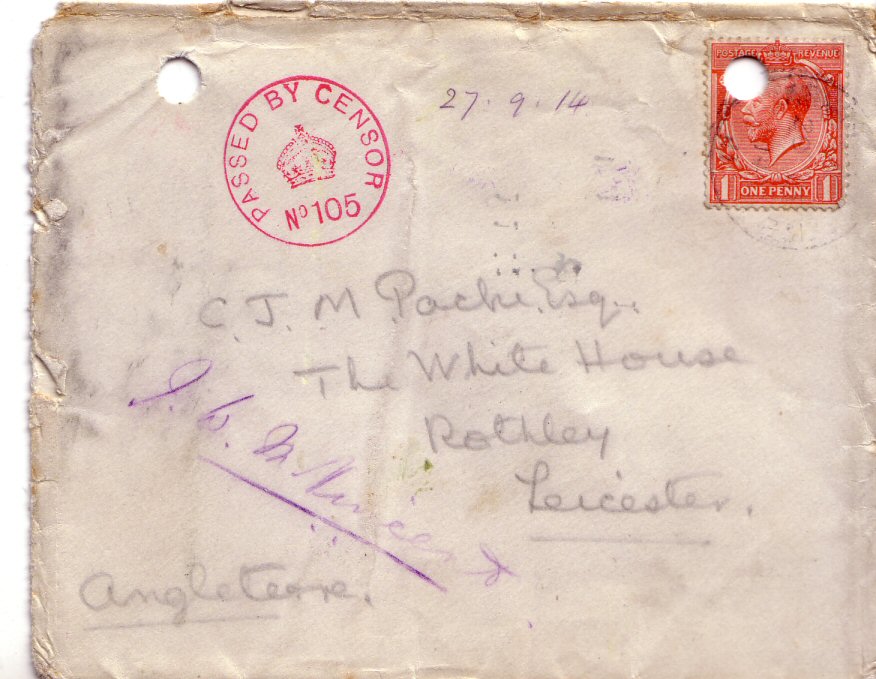 PASSED BY CENSOR
Nº 105
27. 9. 14
POSTAGE REVENUE
1 ONE PENNY 1
C. J. M Packe Esq.
The White House
Rothley
Leicester.
Angleterre.